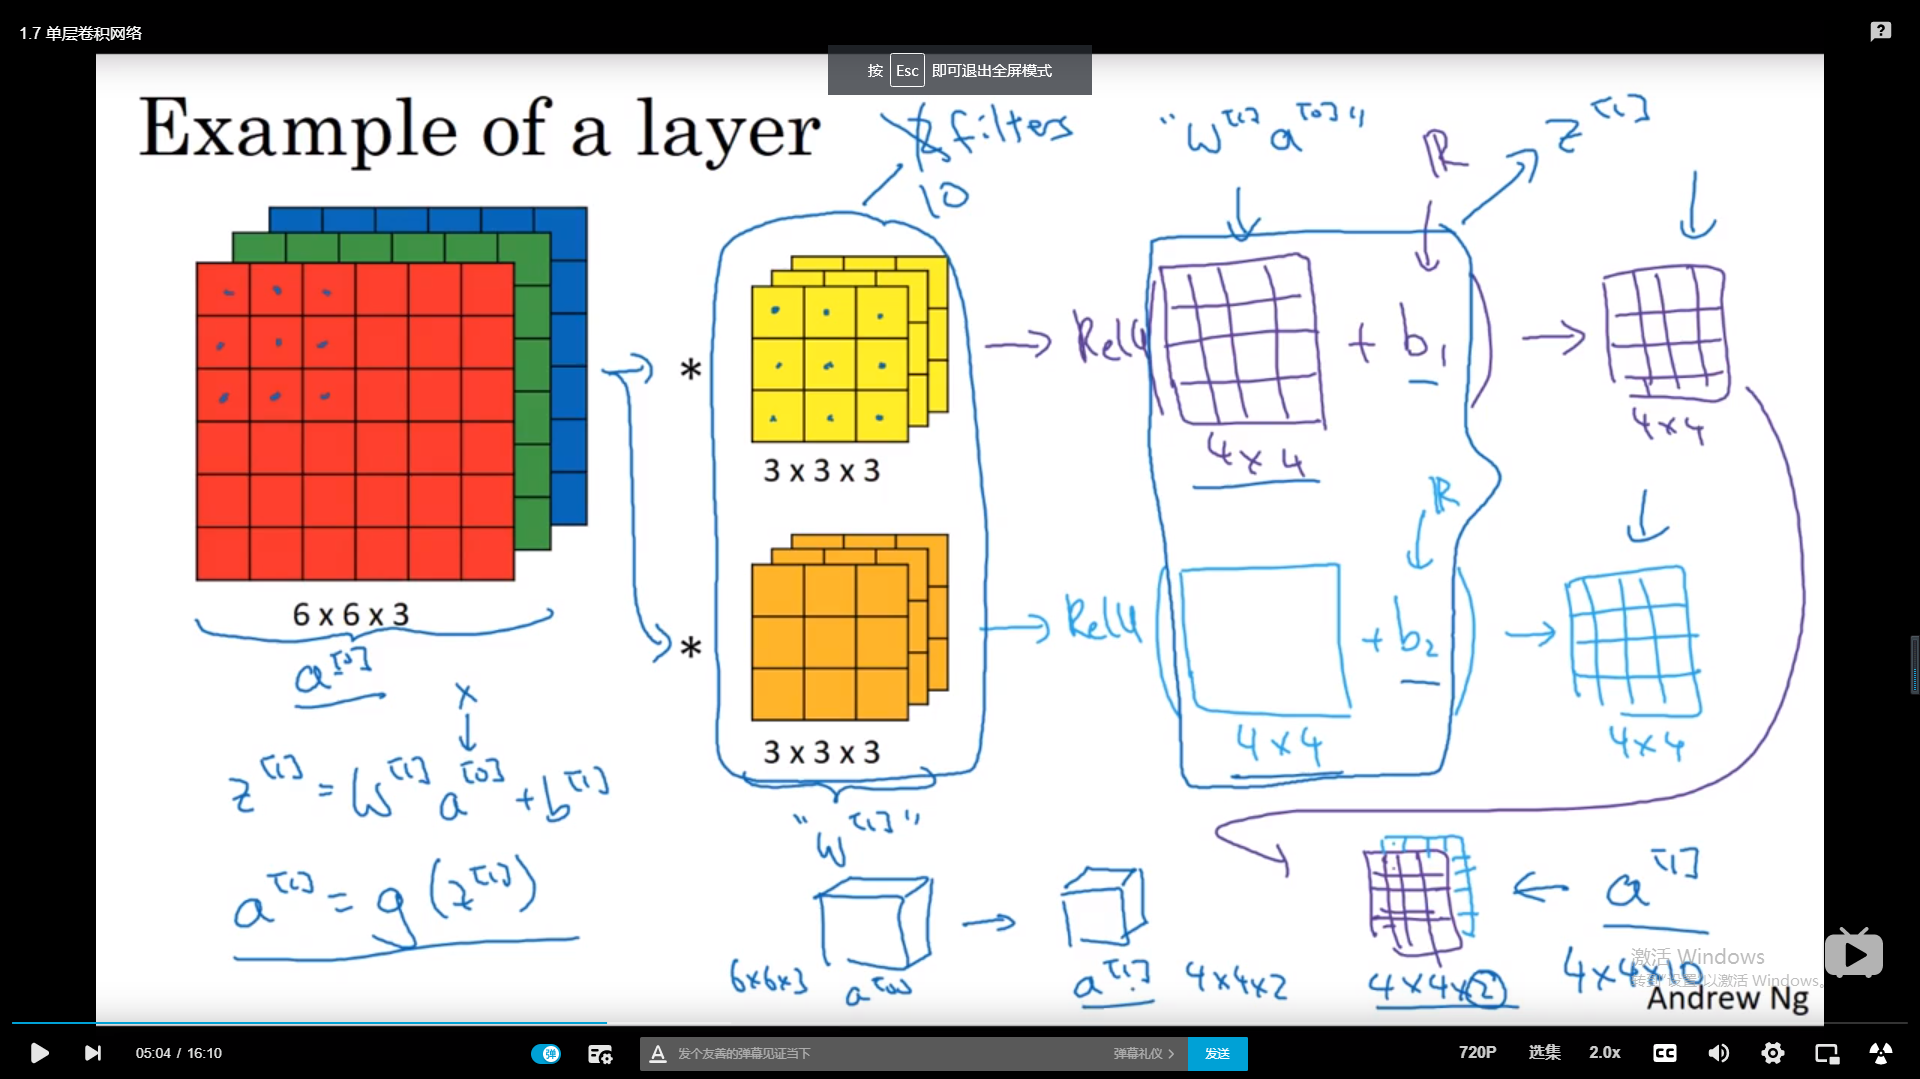 1.7 单层卷积网络
按 Esc 即可退出全屏模式
Example of a layer
filters
10
"W[1] a[0]"
ℝ
z[1]
*
3 x 3 x 3
→ ReLU
+ b1
4x4
4x4
6 x 6 x 3
a[0]
*
3 x 3 x 3
→ ReLU
ℝ
+ b2
4x4
4x4
x
z[1] = W[1] a[0] + b[1]
a[1] = g(z[1])
"W[1]"
6x6x3
a[0]
→
a[1]
4x4x2
4x4x2
← a[1]
4x4x10
激活 Windows
转到"设置"以激活 Windows。
Andrew Ng
05:04 / 16:10
弹
A 发个友善的弹幕见证当下
弹幕礼仪 >
发送
720P
选集
2.0x
CC